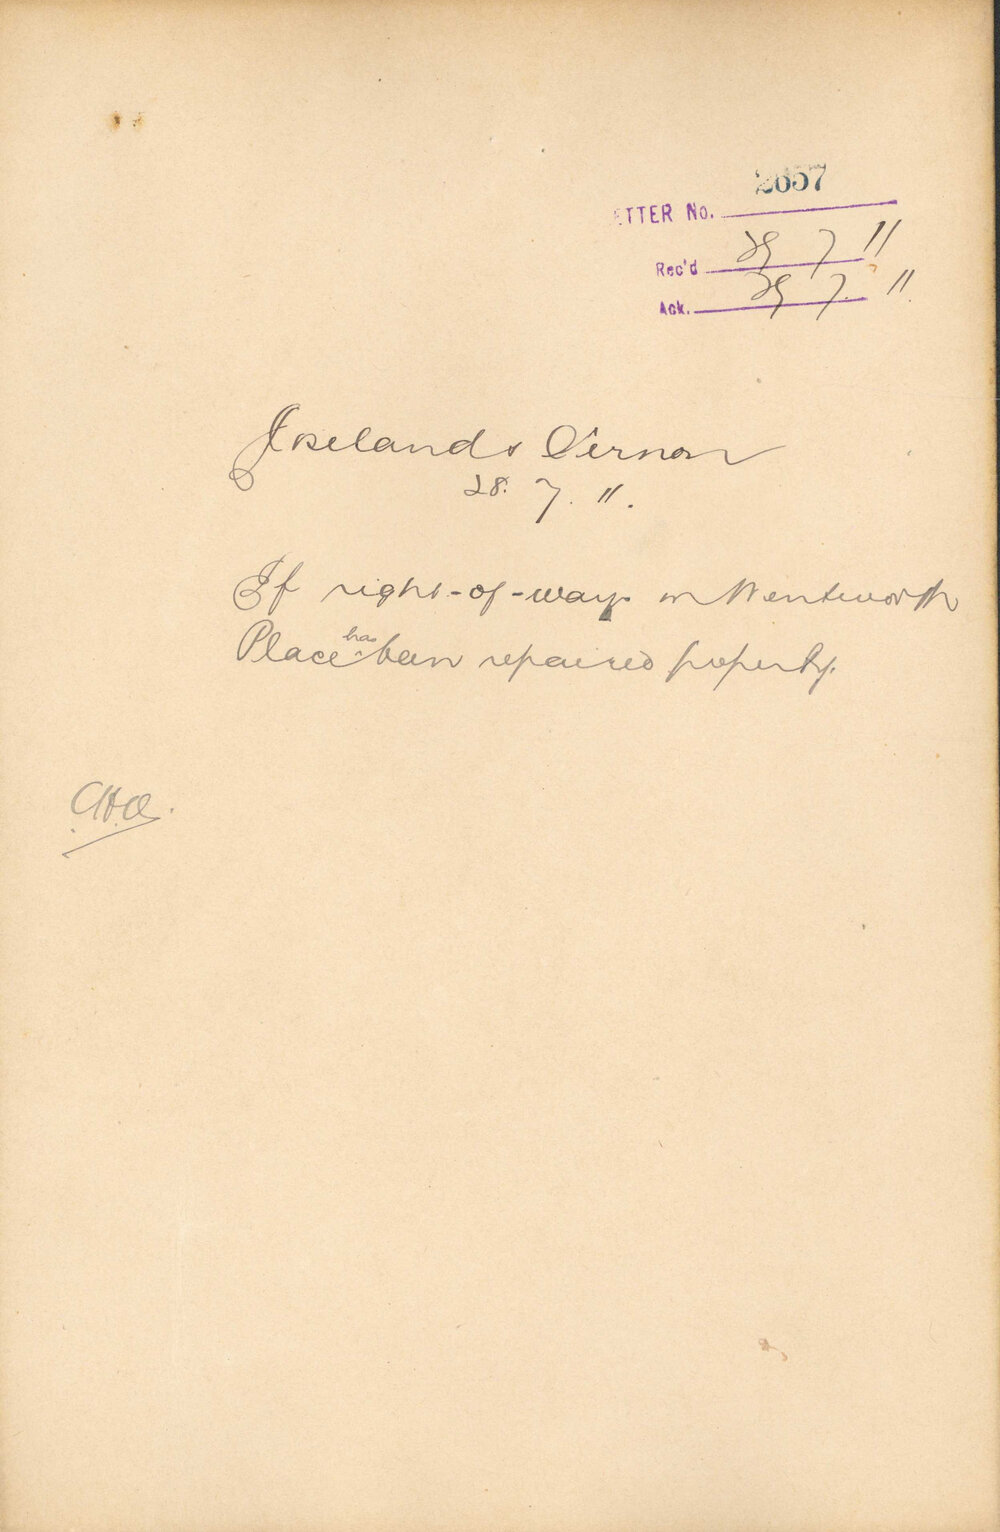 2657
ETTER No.
Rec'd 29 7 11
Ack. 29 7. 11.
Joseland & Vernon
28. 7. 11.
If right-of-way in Wentworth
Place has been repaired properly.